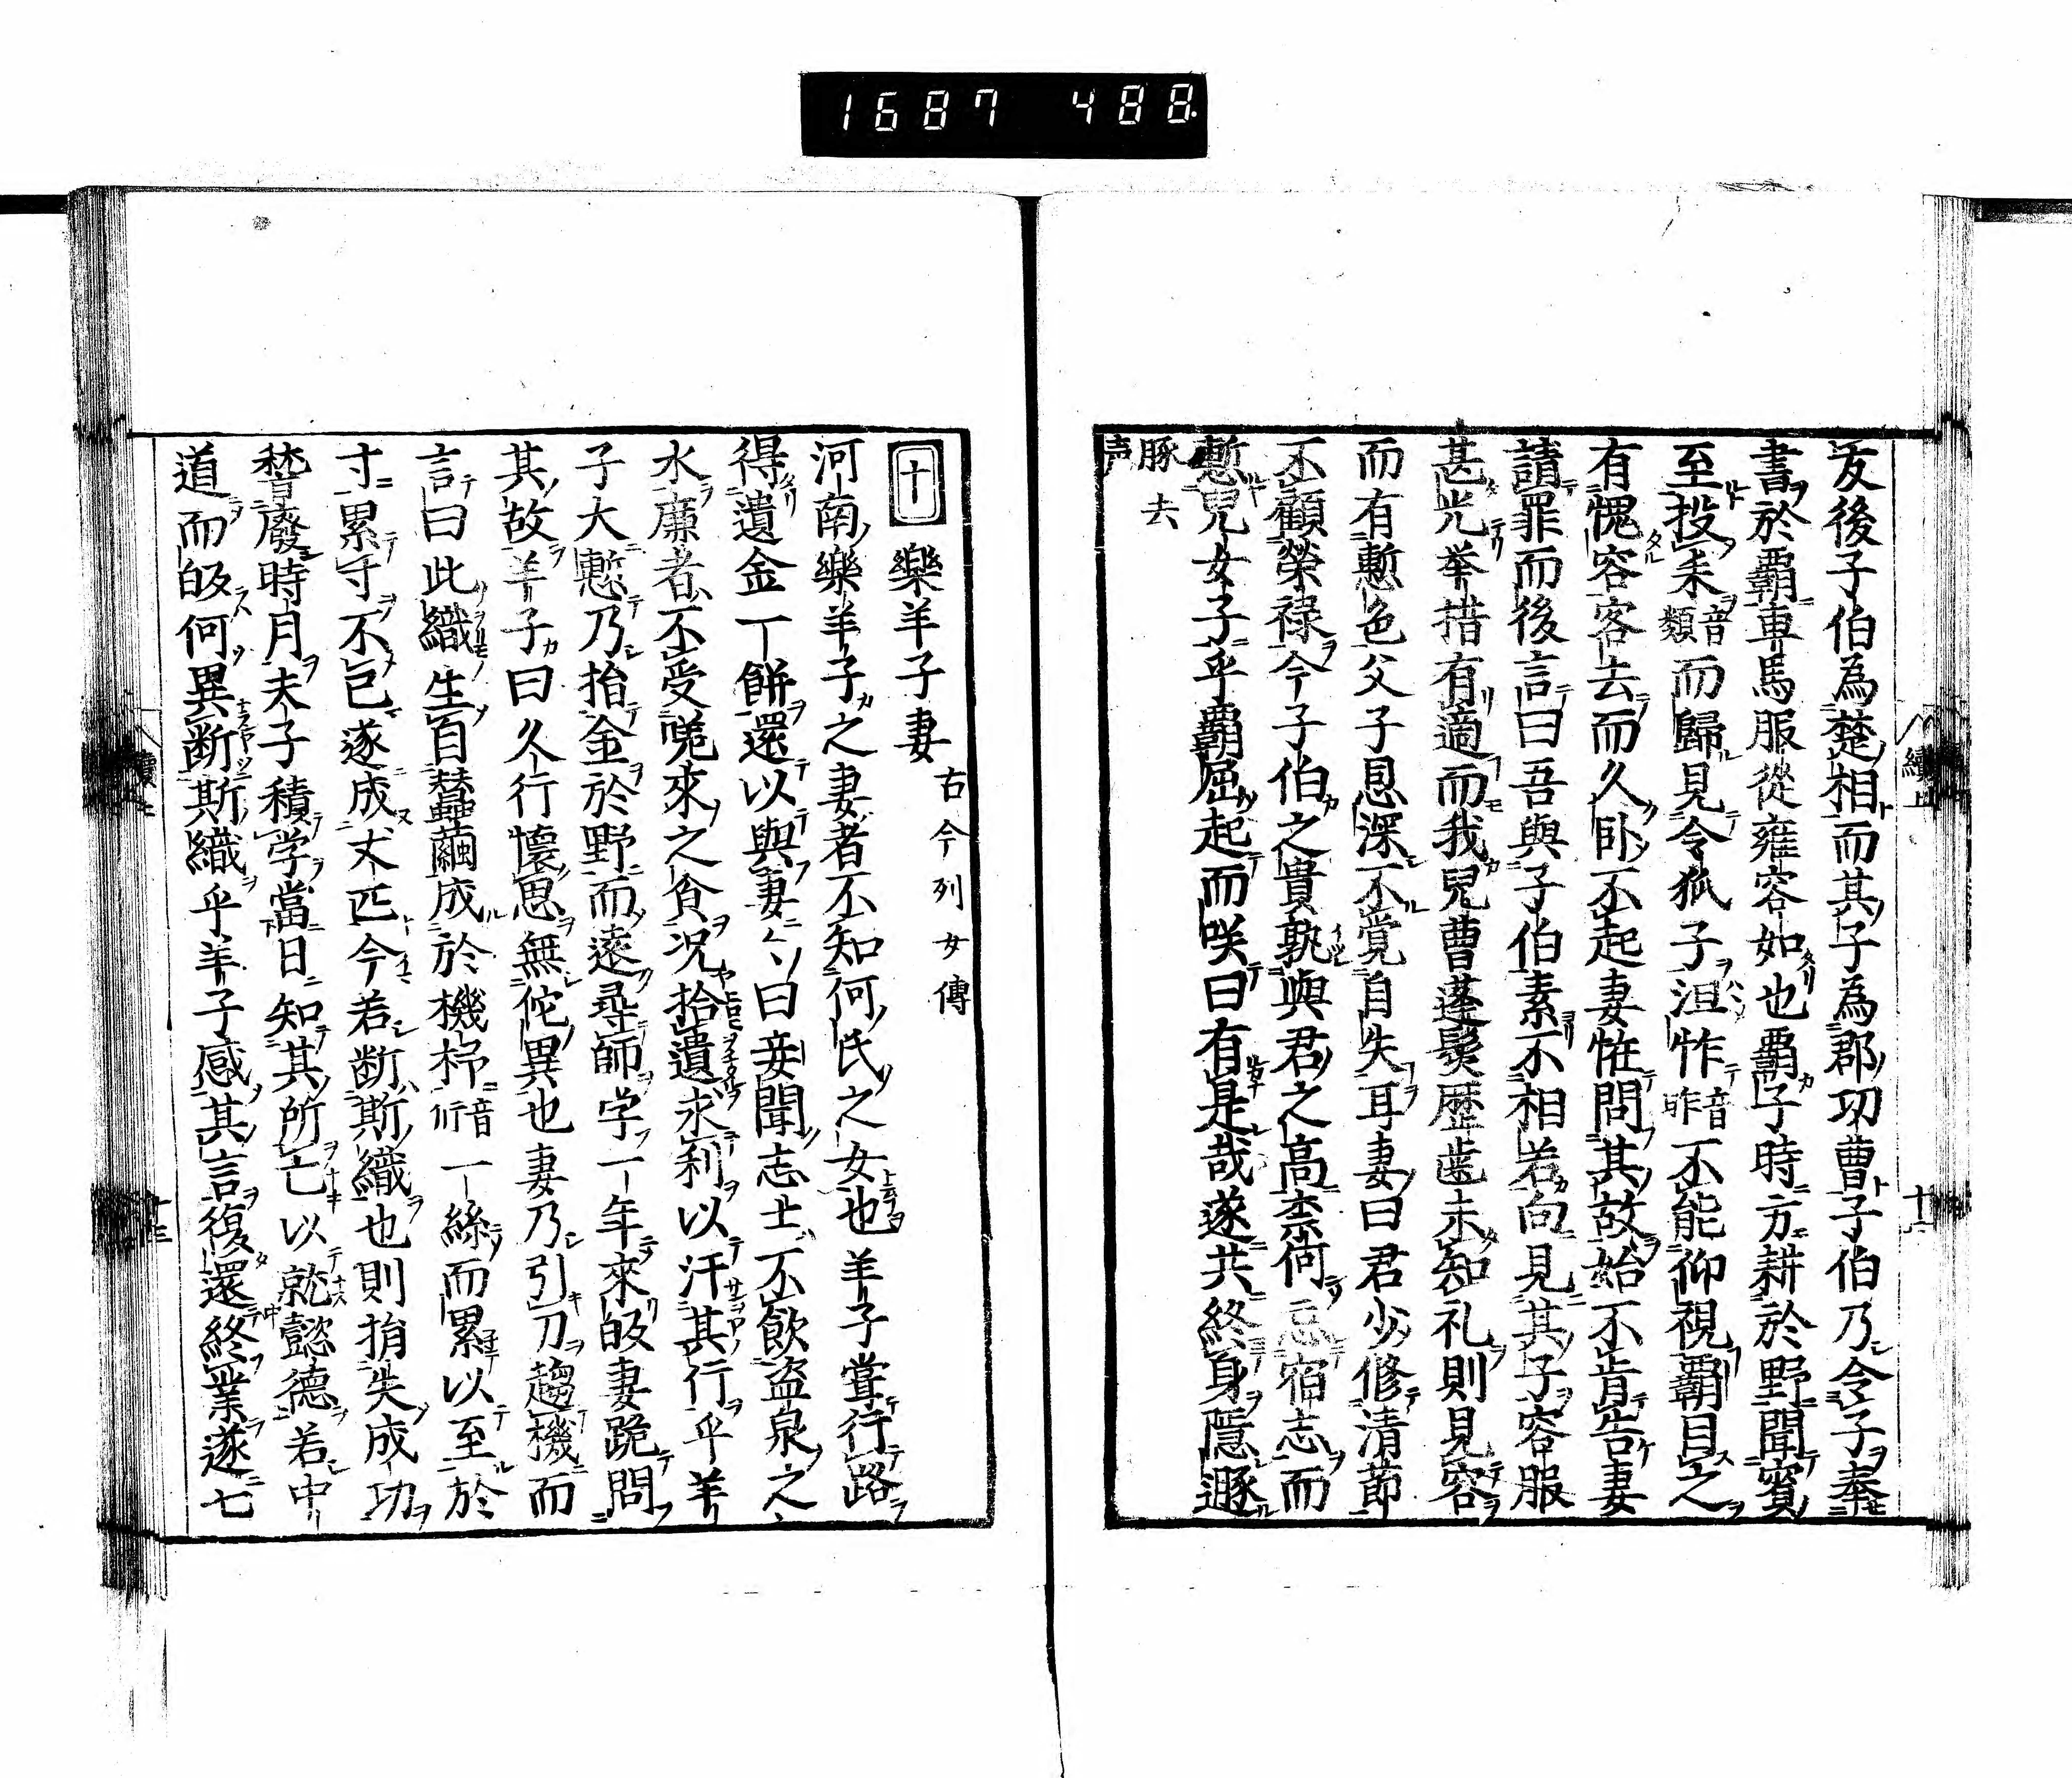 1687 488
友後子伯為楚相而其子為郡功曹子伯乃令子奉
書於覇車馬服從雍容如也覇子時方耕於野聞賓
至投耒音類而歸見令狐子沮怍音昨不能仰視覇目之
有愧容客去而久臥不起妻恠問其故始不肯告妻
請罪而後言曰吾與子伯素不相若向見其子容服
甚光举措有適而我兒曹蓬髮歴歯未知礼則見客
而有慙色父子恩深不覚自失耳妻曰君少修清節
不顧榮禄今子伯之貴孰與君之高柰何忘宿志而
慙兒女子乎覇屈起而咲曰有是哉遂共終身隠遯
豚去
声
十 樂羊子妻 古今列女傳
河南樂羊子之妻者不知何氏之女也羊子嘗行路
得遺金一餅還以與妻々曰妾聞志士不飲盗泉之
水廉者不受嗟來之食况拾遺求利以汙其行乎羊
子大慙乃捨金於野而遠尋師学一年來皈妻跪問
其故羊子曰久行懐思無佗異也妻乃引刀趨機而
言曰此織生自蠶繭成於機杼音 一絲而累以至於
寸累寸不已遂成丈匹今若断斯織也則捐失成功
稽廢時月夫子積学當日知其所亡以就懿德若中
道而皈何異断斯織乎羊子感其言復還終業遂七